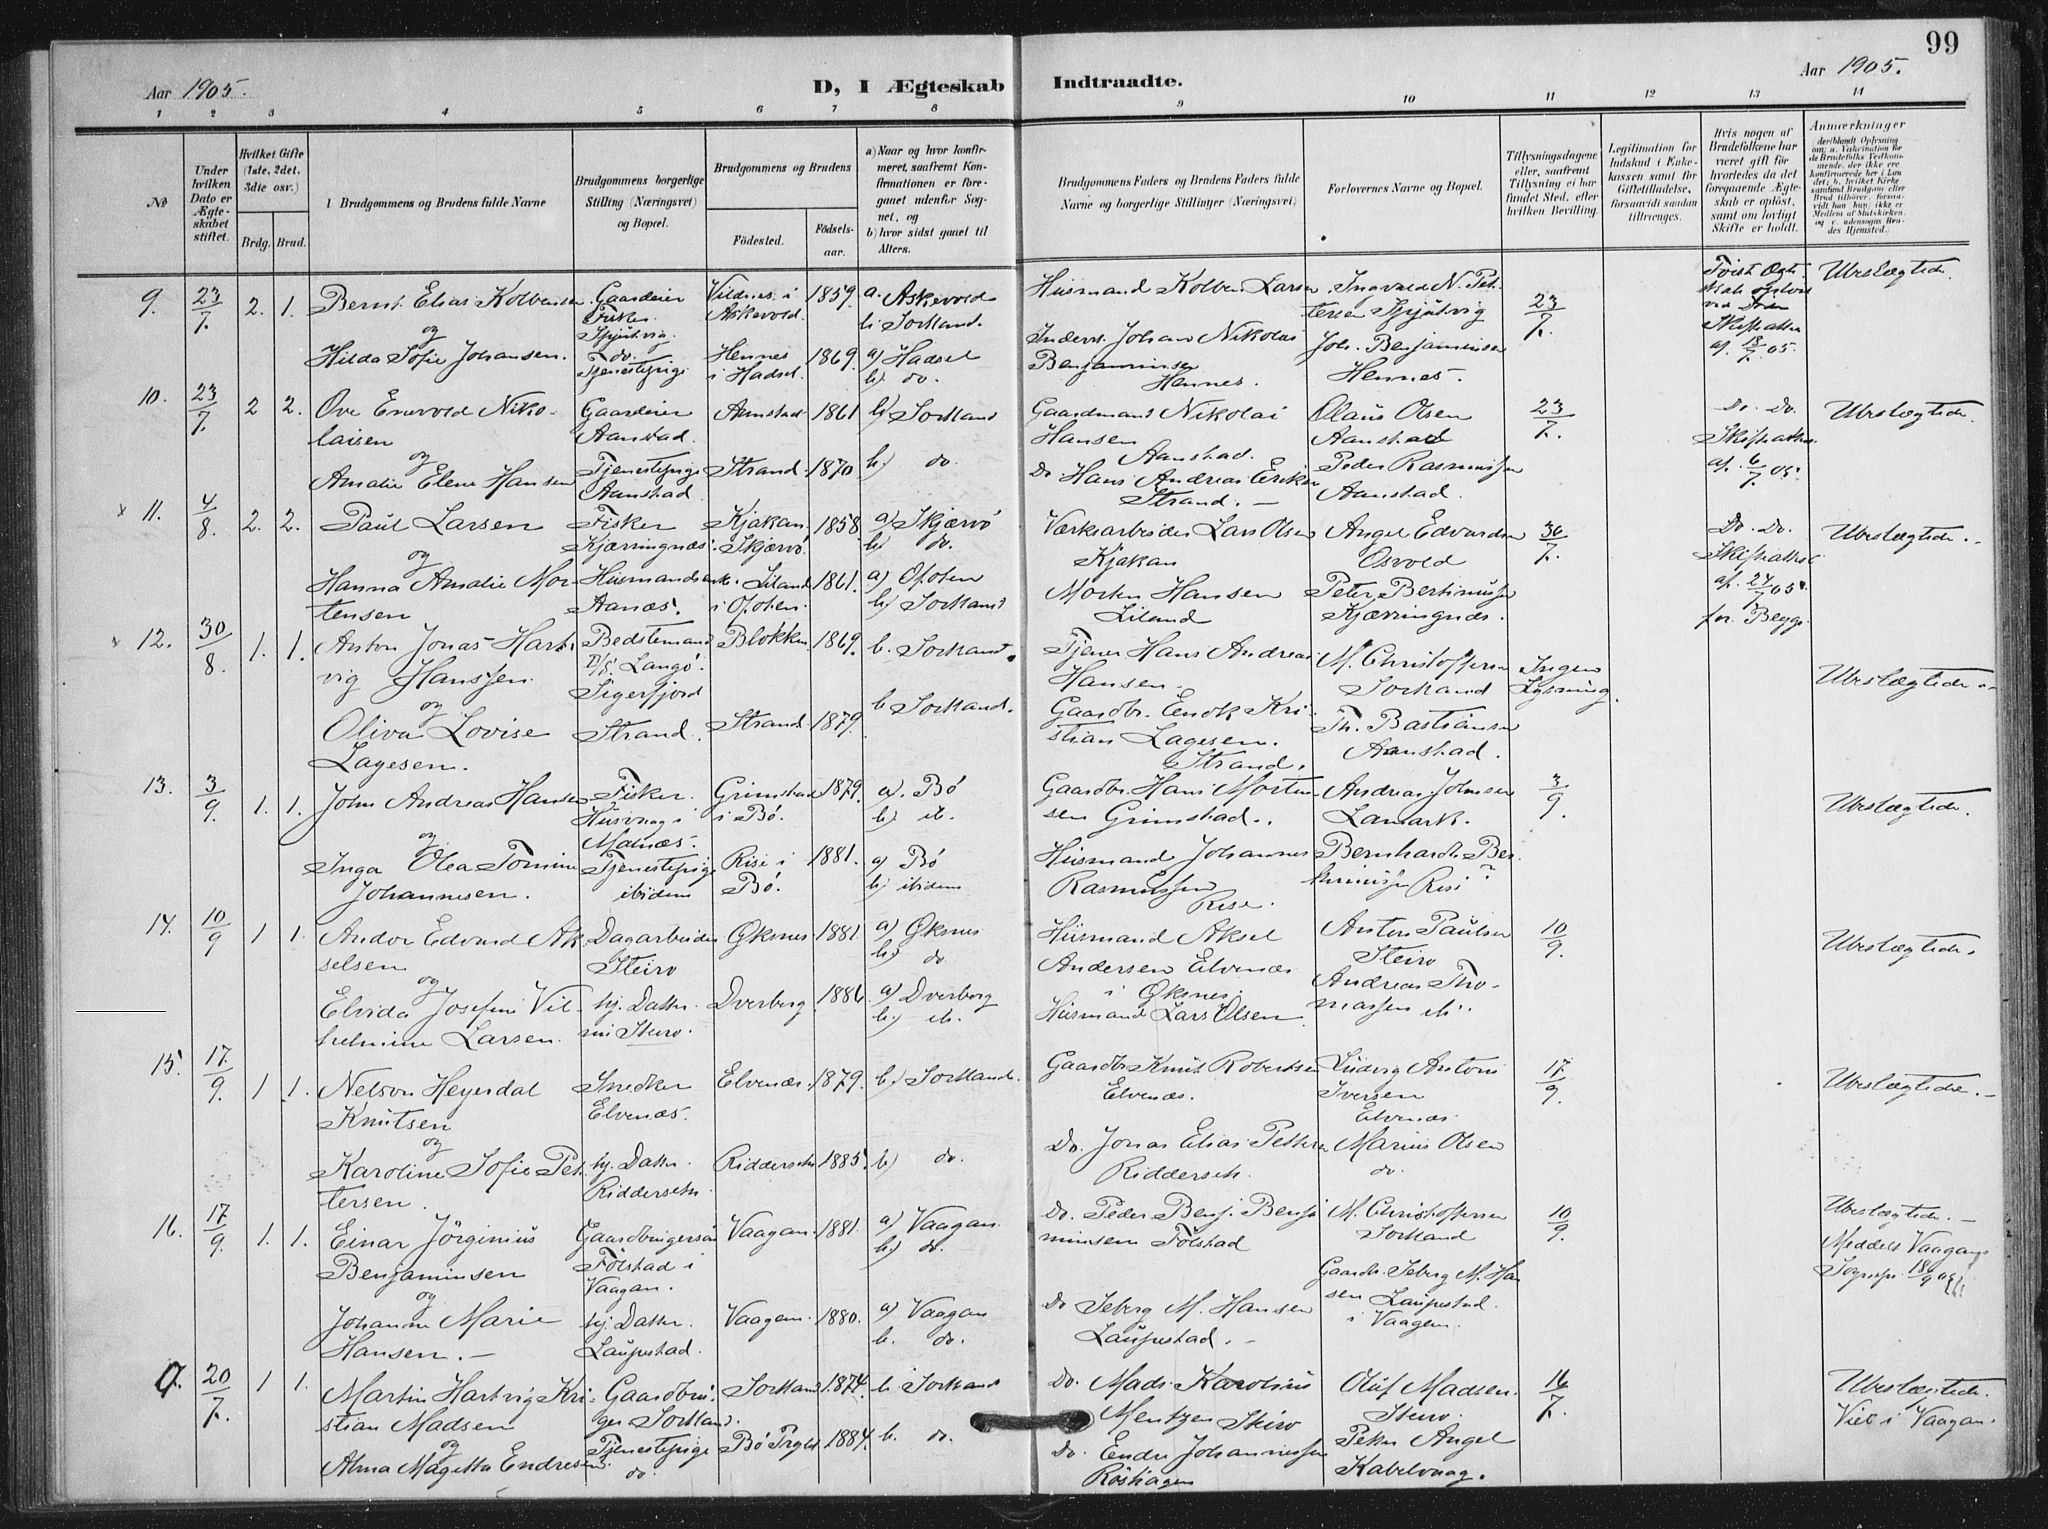 99
Aar 1905.
D, I Ægteskab Indtraadte.
Aar 1905.
1 2 3 4 5 6 7 8 9 10 11 12 13 14
No
Under hvilken Dato er Ægteskabet stiftet.
Hvilket Gifte (1ste, 2det, 3die osv.)
Brdg. Brud.
Brudgommens og Brudens fulde Navne
Brudgommens borgerlige Stilling (Næringsvei) og Bopæl.
Brudgommens og Brudens
Födested.
Födselsaar.
a) Naar og hvor konfirmeret, saafremt Konfirmationen er foregaaet udenfor Sognet, og
b) hvor sidst gaaet til Alters.
Brudgommens Faders og Brudens Faders fulde Navne og borgerlige Stillinger (Næringsvei)
Forlovernes Navne og Bopæl.
Tillysningsdagene eller, saafremt Tillysning ei har fundet Sted, efter hvilken Bevilling.
Legitimation for Indskud i Enkekassen samt for Giftetilladelse, forsaavidt saadan tiltrænges.
Hvis nogen af Brudefolkene har været gift för hvorledes da det foregaaende Ægteskab er oplöst, samt om lovligt Skifte er holdt.
Anmærkninger
9. 23/7. 2. 1. Bernt Elias Kolbensen Gaardeier Vildnes i 1859. a. Askevold
og Fisker Askevold. b. Sortland.
Hilda Sofie Johansen. Tjenestepige Hennes i Hadsel. 1869. a) Hadsel b) do.
Husmand Kolben Larsen Ingvald N. Pettersen 23/7.
Inderst Johan Nikolai Benjaminsen Hennes. Joh. Benjaminsen Hennes.
af 18/7 05. Ubeslægtede.
10. 23/7. 2 2. Ove Enevold Nikolaisen Gaardeier Aanstad. Aanstad 1861 b) Sortland
og
Amalie Elene Hansen Tjenestepige Aanstad. Strand 1870 b) do.
Gaardmand Nikolai Hansen Aanstad. Olaus Olsen Aanstad 23/7.
Do. Hans Andreas Eriksen Strand. – Peder Rasmussen Aanstad.
Do. Do. Skifteattest af 6/7 05. Ubeslægtede.
x 11. 4/8. 2. 2. Paul Larsen Fisker Kjærringnæs. Kjækan Skjærvö. 1858. a) Skjærvö b) do.
og
Hanna Amalie Mortensen Aanæs. Liland i Ofoten. 1861. a) Ofoten b) Sortland
Værksarbeider Lars Olsen Kjækan Angel Edvardsen Osvold 30/7.
Morten Hansen Liland Peter Bertinussen Kjærringnæs.
Do. Do. Skifteattest af 27/7 05. for Begge Ubeslægtede. –
x 12. 30/8. 1. 1. Anton Jonas Hartvig Hanssen Bedstemand D/S. Langö. Sigerfjord Blokken 1869. b. Sortland.
og
Oliva Lovise Lagesen. Strand. Strand 1879. b Sortland.
Tjener Hans Andreas Hansen. M. Christoffersen Sortland Ingen Lysning.
Gaardbr. Enok Kristian Lagesen. Strand. Th. Bastiansen Aanstad.
Ubeslægtede. –
13. 3/9. 1. 1. John Andreas Hansen Fisker. Husvaag i Malnæs. Grimstad i Bö. 1879. a. Bö b) ib.
og
Inga Olea Tomine Johannesen. Tjenestepige ibidem Risi i Bö. 1881. a) Bö b) ibidem
Gaardbr. Hans Mortensen Grimstad. Andreas Johnsen Lamark. 3/9.
Husmand Johannes Rasmussen Rise. Bernhardt Risi ?
Ubeslægtede.
14. 10/9 1 1. Andor Edvard Akselsen Dagarbeider Steiro Öksnes 1881. a) Öksnes b) do
og
Elvida Josefine Vilhelmine Larsen. hj. Datter Steiro. Dverberg 1886 a) Dverberg b) ib.
Husmand Aksel Andersen Elvenæs i Öksnes. Anton Paulsen Steiro 10/9.
Husmand Lars Olsen Andreas Thomassen ib.
Ubeslægtede.
15. 17/9. 1 1. Nelson Heyerdal Knutsen Snedker Elvenæs. Elvenæs. 1879. b.) Sortland.
og
Karoline Sofie Pettersen. hj. Datter. Riddersetr. Riddersetr 1885. b) do.
Gaardbr. Knut Robertsen Elvenæs. Ludvig Anton Iversen Elvenæs. 17/9.
Do. Jonas Elias Pettersen Riddersetr. Marius Olsen do.
Ubeslægtede. –
16. 17/9. 1. 1. Einar Jörginius Benjaminsen Gaardbrugersön Fölstad i Vaagan. Vaagan. 1881. a) Vaagan. b.) do.
og
Johanne Marie Hansen. – hj. Datter. Laupstad. Vaagan. 1880. a) Vaagan b. do.
Do. Peder Benj. Benjaminsen Fölstad M. Christoffersen Sortland 10/9.
Do Seberg M. Hansen Laupstad. – Gaardbr. Seberg M. Hansen Laupstad. i Vaagan.
Ubeslægtede. –
Meddelt Vaagans Sognepr. 18/9 05
17. 20/7. 1 1. Martin Hartvig Kristian Madsen Gaardbruger Sortland. Sortland 1874. b. Sortland
og
Alma Magetta Endresen Tjenestepige do. Bö Prgld 1884. b. do.
Do. Mads Karolius Mentzen Steiro Oluf Madsen. Steiro. 16/7.
Do. Endre Johannessen Röskagen Peter Angel Kabelvaag.
Ubeslægtede.
Viet i Vaagan.